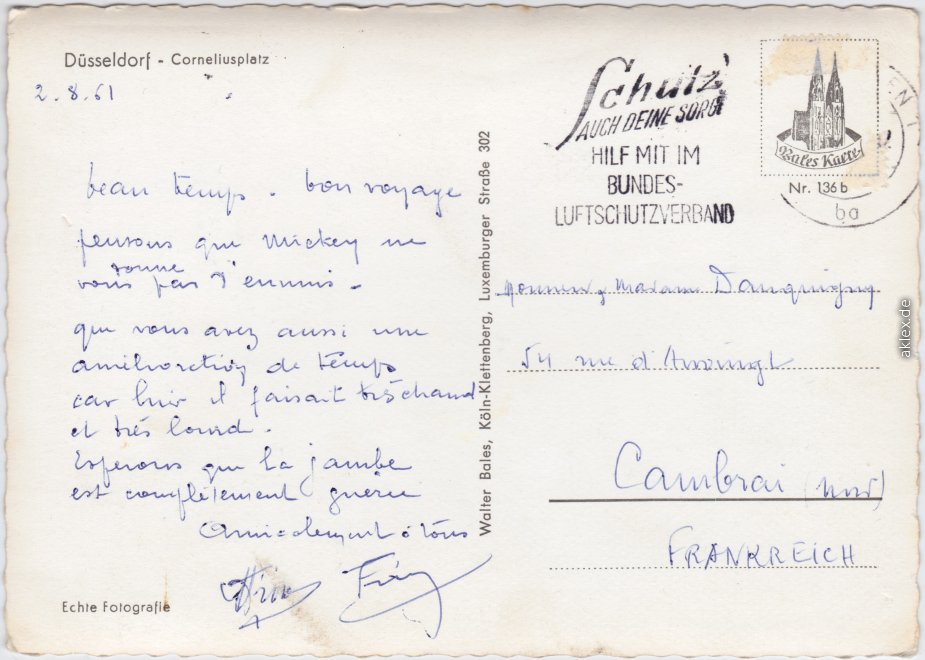 Düsseldorf - Corneliusplatz
2.8.61
beau temps - bon voyage
pensons que Mickey ne
donne
vous pas d'ennuis.
que vous avez aussi une
amélioration de temps
car hier il faisait très chaud
et très lourd.
Espérons que la jambe
est complètement guérie
Amicalement à tous
Echte Fotografie
Walter Bales, Köln-Klettenberg, Luxemburger Straße 302
Schütz'
AUCH DEINE SORGE
HILF MIT IM
BUNDES-
LUFTSCHUTZVERBAND
Bales Karte
Nr. 136 b
ba
Monsieur Madame
54 rue d'
Cambrai (Nord)
FRANKREICH
aklex.de